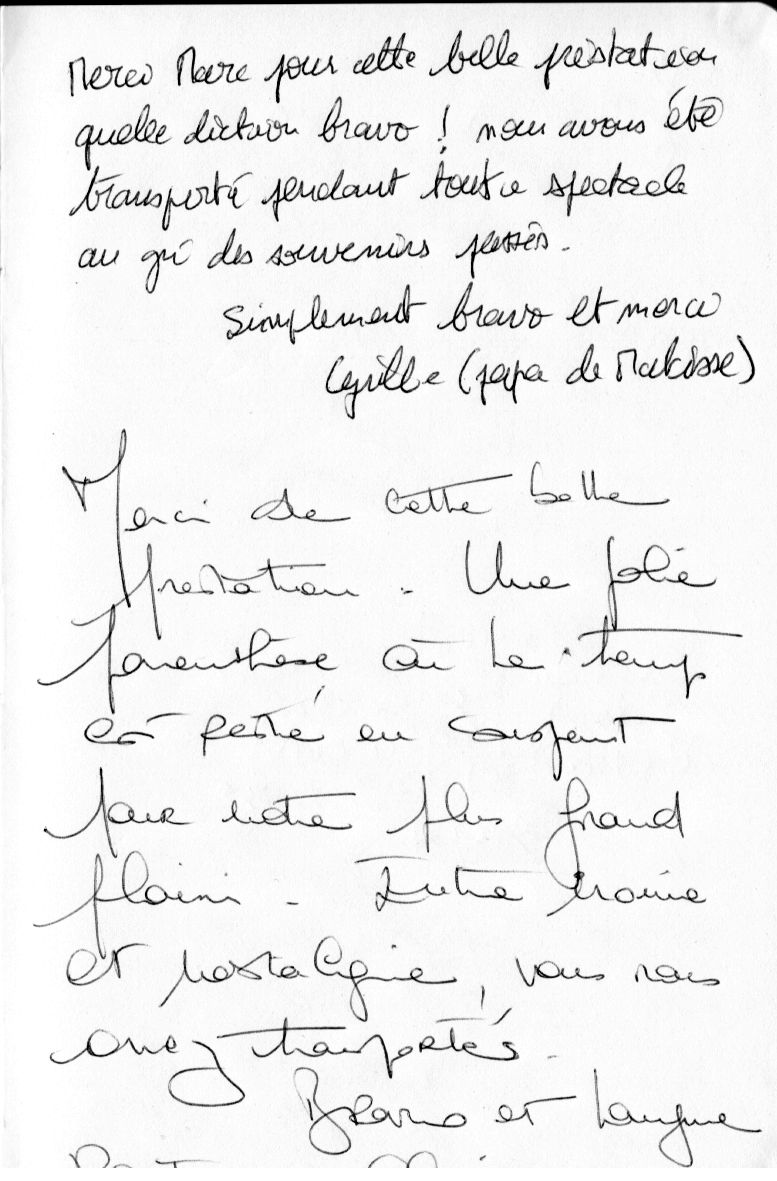 Merci Marc pour cette belle préstation
quelle diction bravo ! nous avons été
transporté pendant tout le spectacle
au gré des souvenirs passés.
Simplement bravo et merci
Cyrille (papa de
Merci de cette belle
prestation. Une jolie
parenthèse où le temps
est resté en suspent
pour notre plus grand
plaisir. Entre ironie
et nostalgie, vous nous
avez transportés.
Bravo et longue